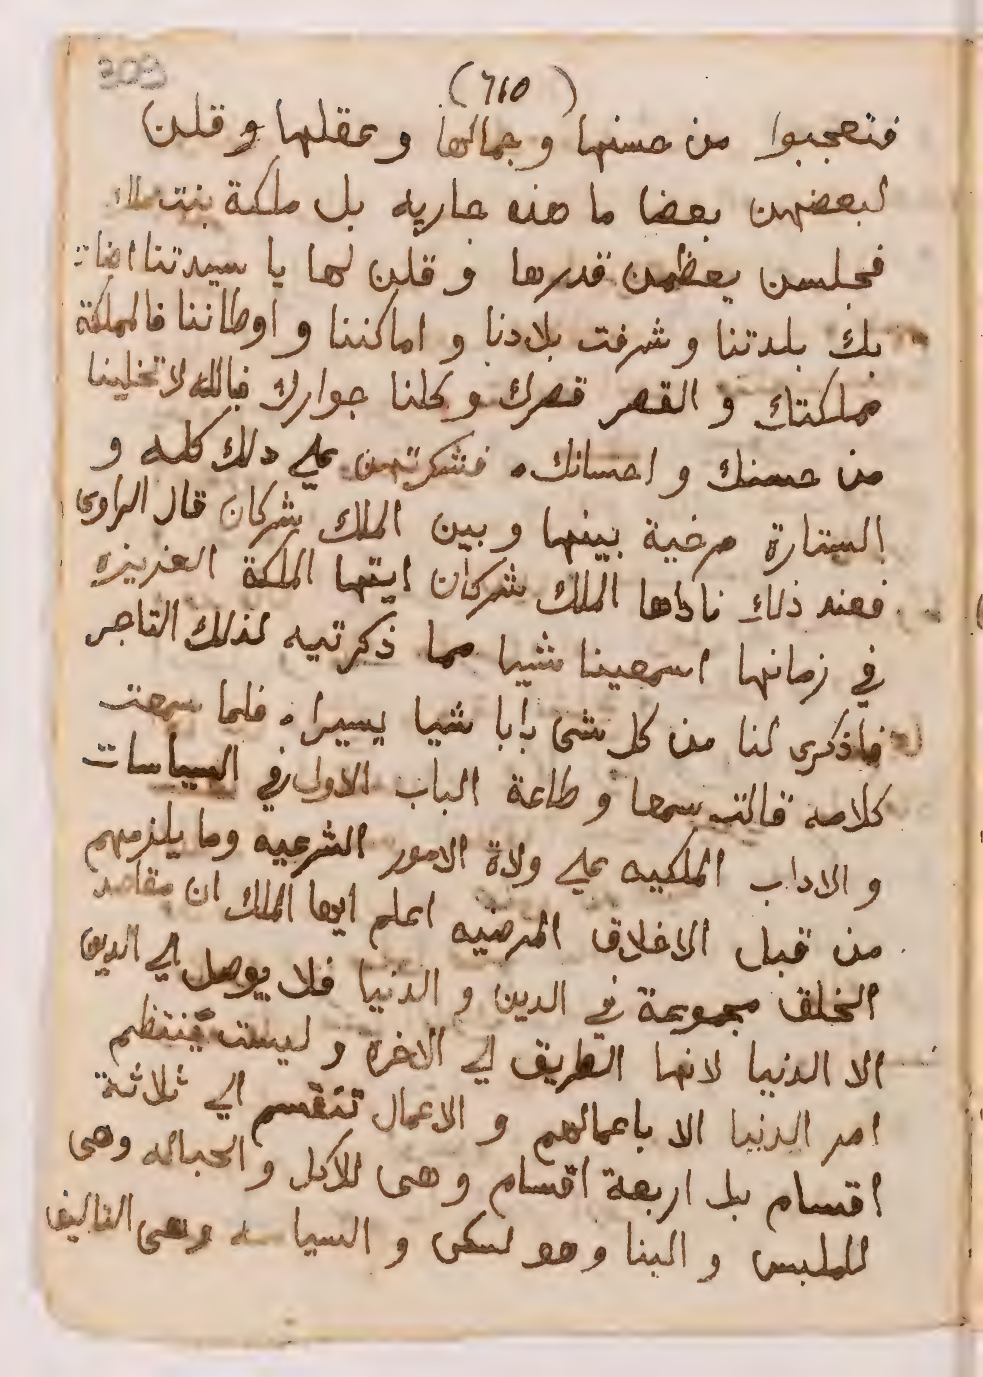 309
(٦١٥)
فتعجبوا من حسنها وجمالها وعقلها وقلن
لبعضهن بعضا ما هذه جاريه بل ملكة بنت ملك
فجلسن يعظمن قدرها و قلن لها يا سيدتنا اضات
بك بلدتنا و شرفت بلادنا و اماكننا و اوطاننا فالمملكة
مملكتك و القصر قصرك و كلنا جوارك فبالله لا تخلينا
من حسنك و احسانك. فشكرتهن علي دلك كله و
الستارة مرخية بينها و بين الملك شركان قال الراوى
فعند ذلك ناداها الملك شركان ايتها الملكة العزيزه
في زمانها اسمعينا شيا مما ذكرتيه لذلك التاجر
فاذكرى لنا من كل شى بابا شيا يسيرا. فلما سمعت
كلامه قالت سمعا و طاعة الباب الاول في السياسات
و الاداب الملكيه علي ولاة الامور الشرعيه وما يلزمهم
من قبل الاخلاق المرضيه اعلم ايها الملك ان مقاصد
الخلق مجموعة في الدين و الدنيا فلا يوصل الي الدين
الا الدنيا لانها الطريق الي الاخرة و ليست ينتظم
امر الدنيا الا باعمالهم و الاعمال تنقسم الي ثلاثة
اقسام بل اربعة اقسام وهى للاكل و الحياكه وهى
للملبس و البنا وهو لسكن و السياسه وهى التاليف